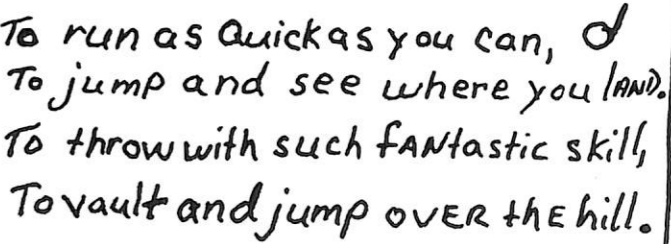 To run as Quick as you can,
To jump and see where you lAND.
To throw with such fANtastic skill,
To vault and jump oVER thE hill.